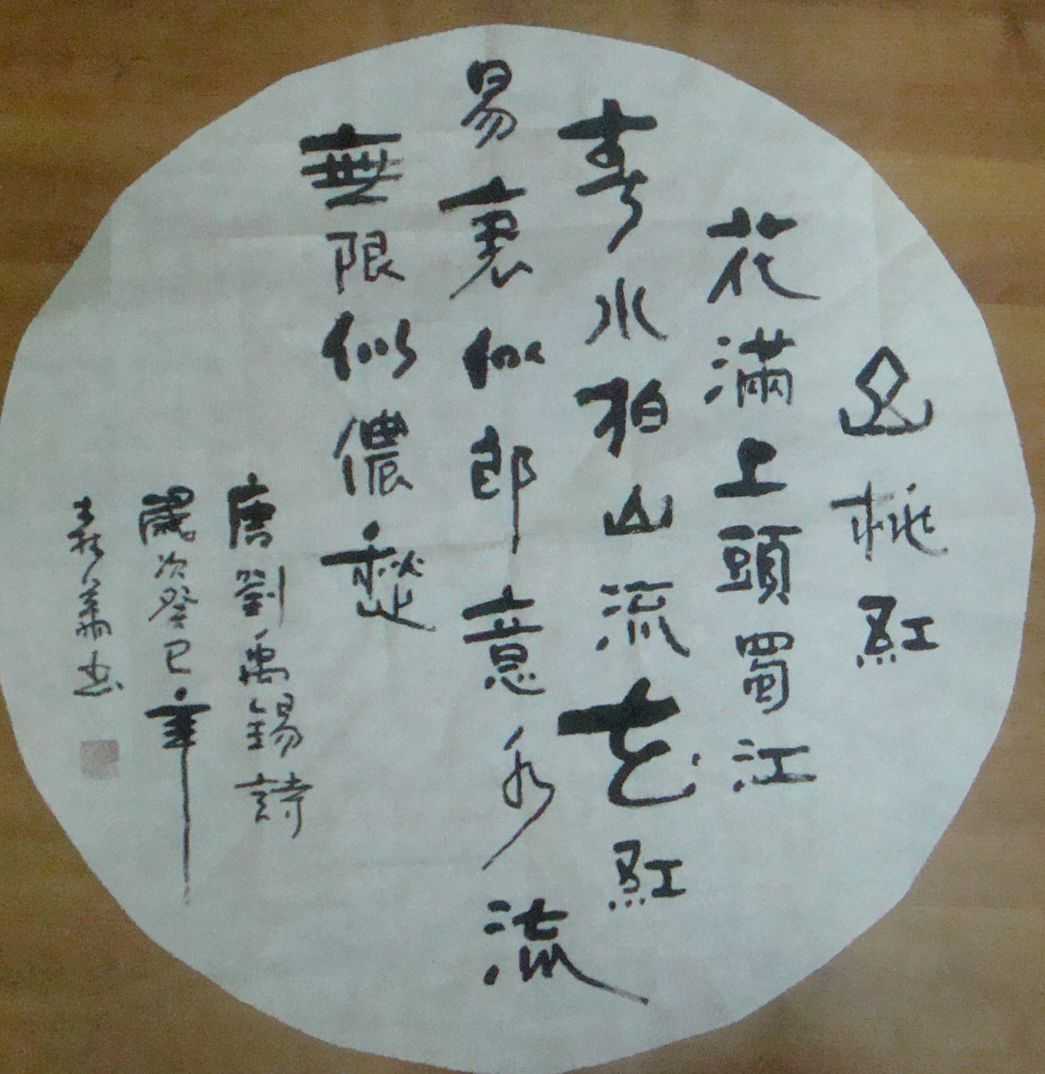 山桃紅
花滿上頭蜀江
春水拍山流花紅
易衰似郎意水流
無限似儂愁
唐劉禹錫詩
歲次癸巳年
書